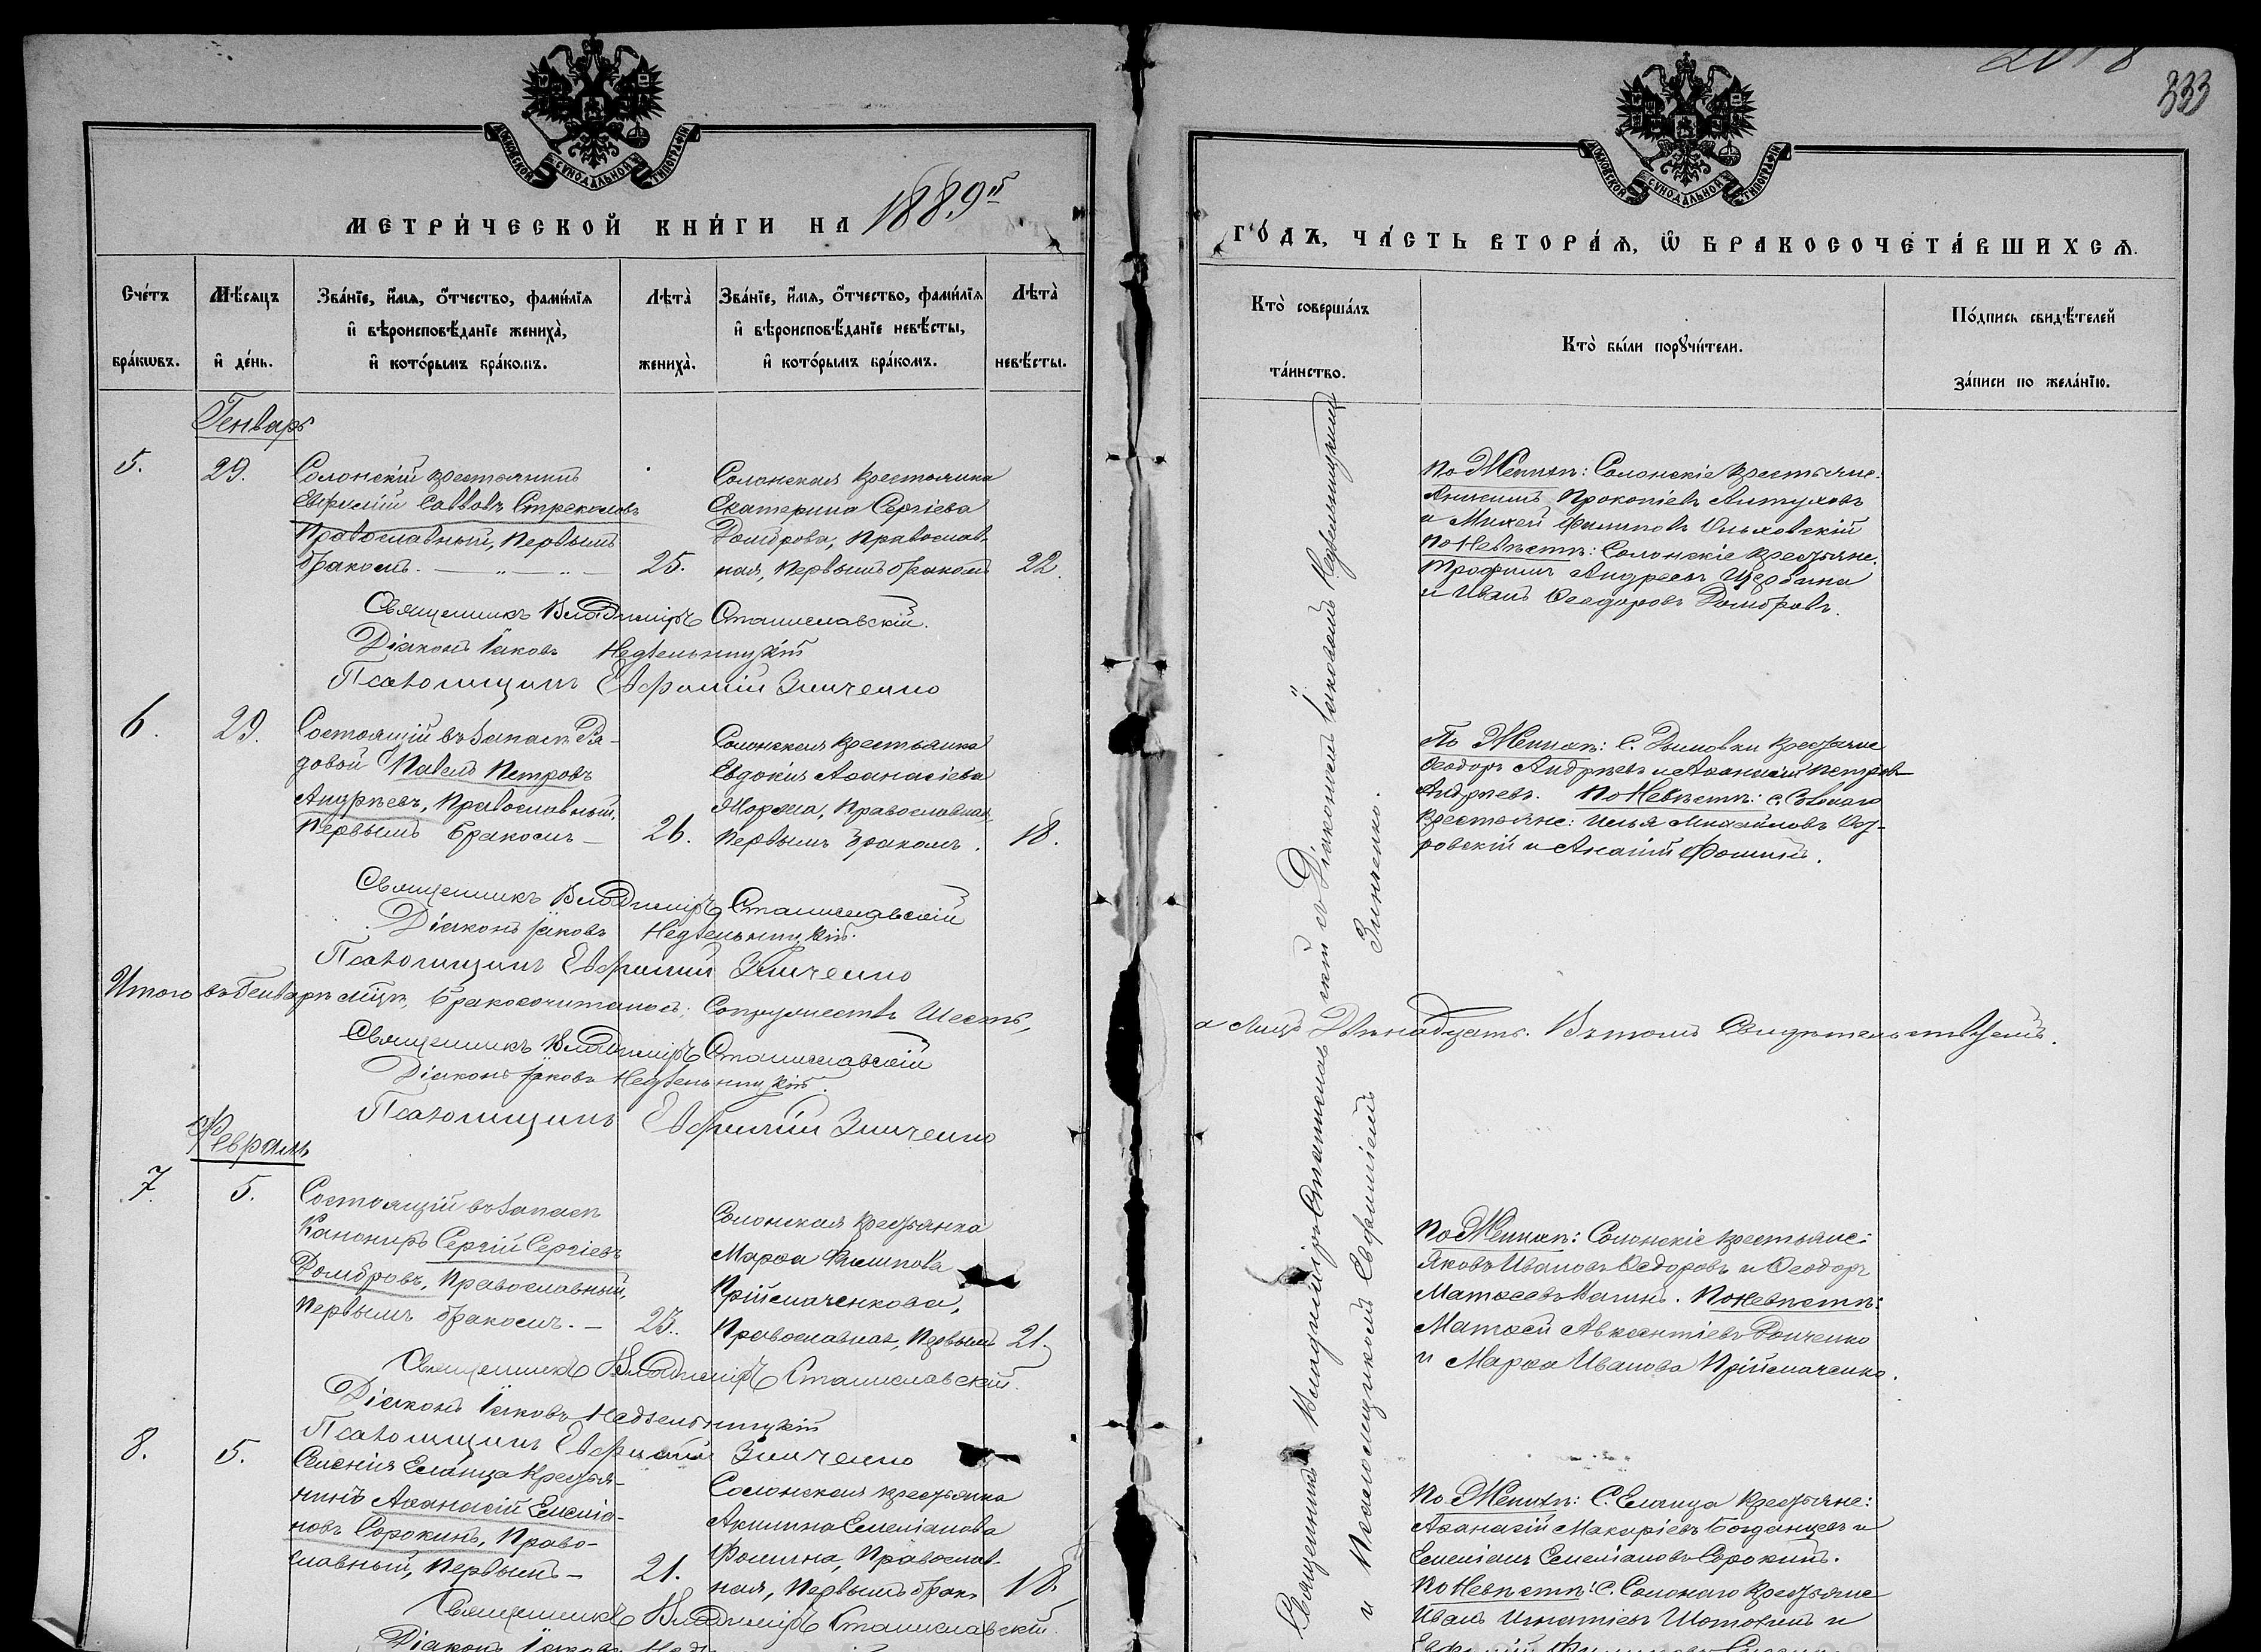 2018
333
МОСКОВСКОЙ СѴНОДАЛЬНОЙ ТИПОГРАФІИ
МОСКОВСКОЙ СѴНОДАЛЬНОЙ ТИПОГРАФІИ
МЕТРИЧЕСКОЙ КНИГИ НА 1889й
ГОДЪ, ЧАСТЬ ВТОРАЯ, Ѡ БРАКОСОЧЕТАВШИХСЯ.
Счетъ браковъ.
Мѣсяцъ и день.
Званіе, имя, отчество, фамилія
и вѣроисповѣданіе жениха,
и которымъ бракомъ.
Лѣта жениха.
Званіе, имя, отчество, фамилія
и вѣроисповѣданіе невѣсты,
и которымъ бракомъ.
Лѣта невѣсты.
Кто совершалъ
таинство.
Кто были поручители.
Подпись свидѣтелей
записи по желанію.
Генварь
5.
29.
Солонскій крестьянинъ
Евфимій Саввовъ Стрекаловъ
Православный, первымъ
бракомъ.
25.
Солонская крестьянка
Екатерина Сергіева
Домброва, Православ-
ная, первымъ бракомъ
22.
По Женихѣ: Солонскіе крестьяне:
Анисимъ Прокопіевъ Антуховъ
и Михей Филиповъ Ольховскій
По Невѣстѣ: Солонскіе крестьяне:
Трофимъ Андреевъ Щербина
и Иванъ Ѳеодоровъ Домбровъ.
Священникъ Владиміръ Станиславскій.
Діаконъ Іаковъ Недѣльницкій
Псаломщикъ Евфимій Зинченко
6.
29.
Состоящій въ запасѣ Ря-
довой Павелъ Петровъ
Андрѣевъ, Православный,
первымъ бракомъ
26.
Солонская крестьянка
Евдокія Аѳанасіева
Православная,
первымъ бракомъ.
18.
По Женихѣ: С. Дымовки крестьяне
Ѳеодоръ Андрѣевъ и Аѳанасій Петровъ
Андрѣевъ. По Невѣстѣ: с. Солонаго
крестьяне: Илья Михайловъ
и Фоминъ.
Священникъ Владиміръ Станиславскій
Діаконъ Іаковъ Недѣльницкій.
Псаломщикъ Евфимій Зинченко
Итого въ Генварѣ мѣсяцѣ, бракосочиталось: Супружествъ Шесть,
а лицъ Двѣнадцать. Въ томъ Свидѣтельствуемъ.
Священникъ Владиміръ Станиславскій
Діаконъ Іаковъ Недѣльницкій.
Псаломщикъ Евфимій Зинченко
Февраль
7.
5.
Состоящій въ запасѣ
Канониръ Сергій Сергіевъ
Домбровъ, Православный,
первымъ бракомъ.
23.
Солонская крестьянка
Марѳа Филипова
Пріймаченкова,
Православная, первымъ
21.
По Женихѣ: Солонскіе крестьяне:
Яковъ Ивановъ Ѳедоровъ и Ѳеодоръ
Матѳеевъ По невѣстѣ:
Матѳей Авксентіевъ Донченко
и Марѳа Иванова Пріймаченко.
Священникъ Владиміръ Станиславскій.
Діаконъ Іаковъ Недѣльницкій
Псаломщикъ Евфимій Зинченко
8.
5.
Селенія Еланца Крестья-
нинъ Аѳанасій Емелiа-
новъ Сорокинъ, Право-
славный, первымъ
21.
Солонская крестьянка
Акилина Емеліанова
Фомина, Православ-
ная, первымъ брак.
18.
По Женихѣ: С. Еланца крестьяне:
Аѳанасій Макаріевъ Богданцевъ и
Емеліанъ Емеліановъ Сорокинъ.
По Невѣстѣ: С. Солонаго крестьяне
Иванъ Игнатіевъ и
Священникъ Владиміръ Станиславскій.
Діаконъ Іаковъ
Священникъ Владиміръ Станиславскій съ Діакономъ Іаковомъ Недѣльницкимъ
и Псаломщикомъ Евфиміемъ Зинченко.